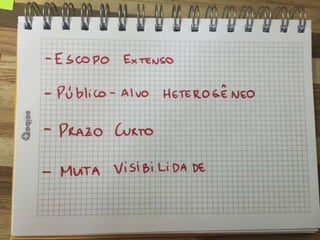 - ESCOPO EXTENSO
- PÚBLICO-ALVO HETEROGÊNEO
- PRAZO CURTO
- MUTA VISIBILIDADE